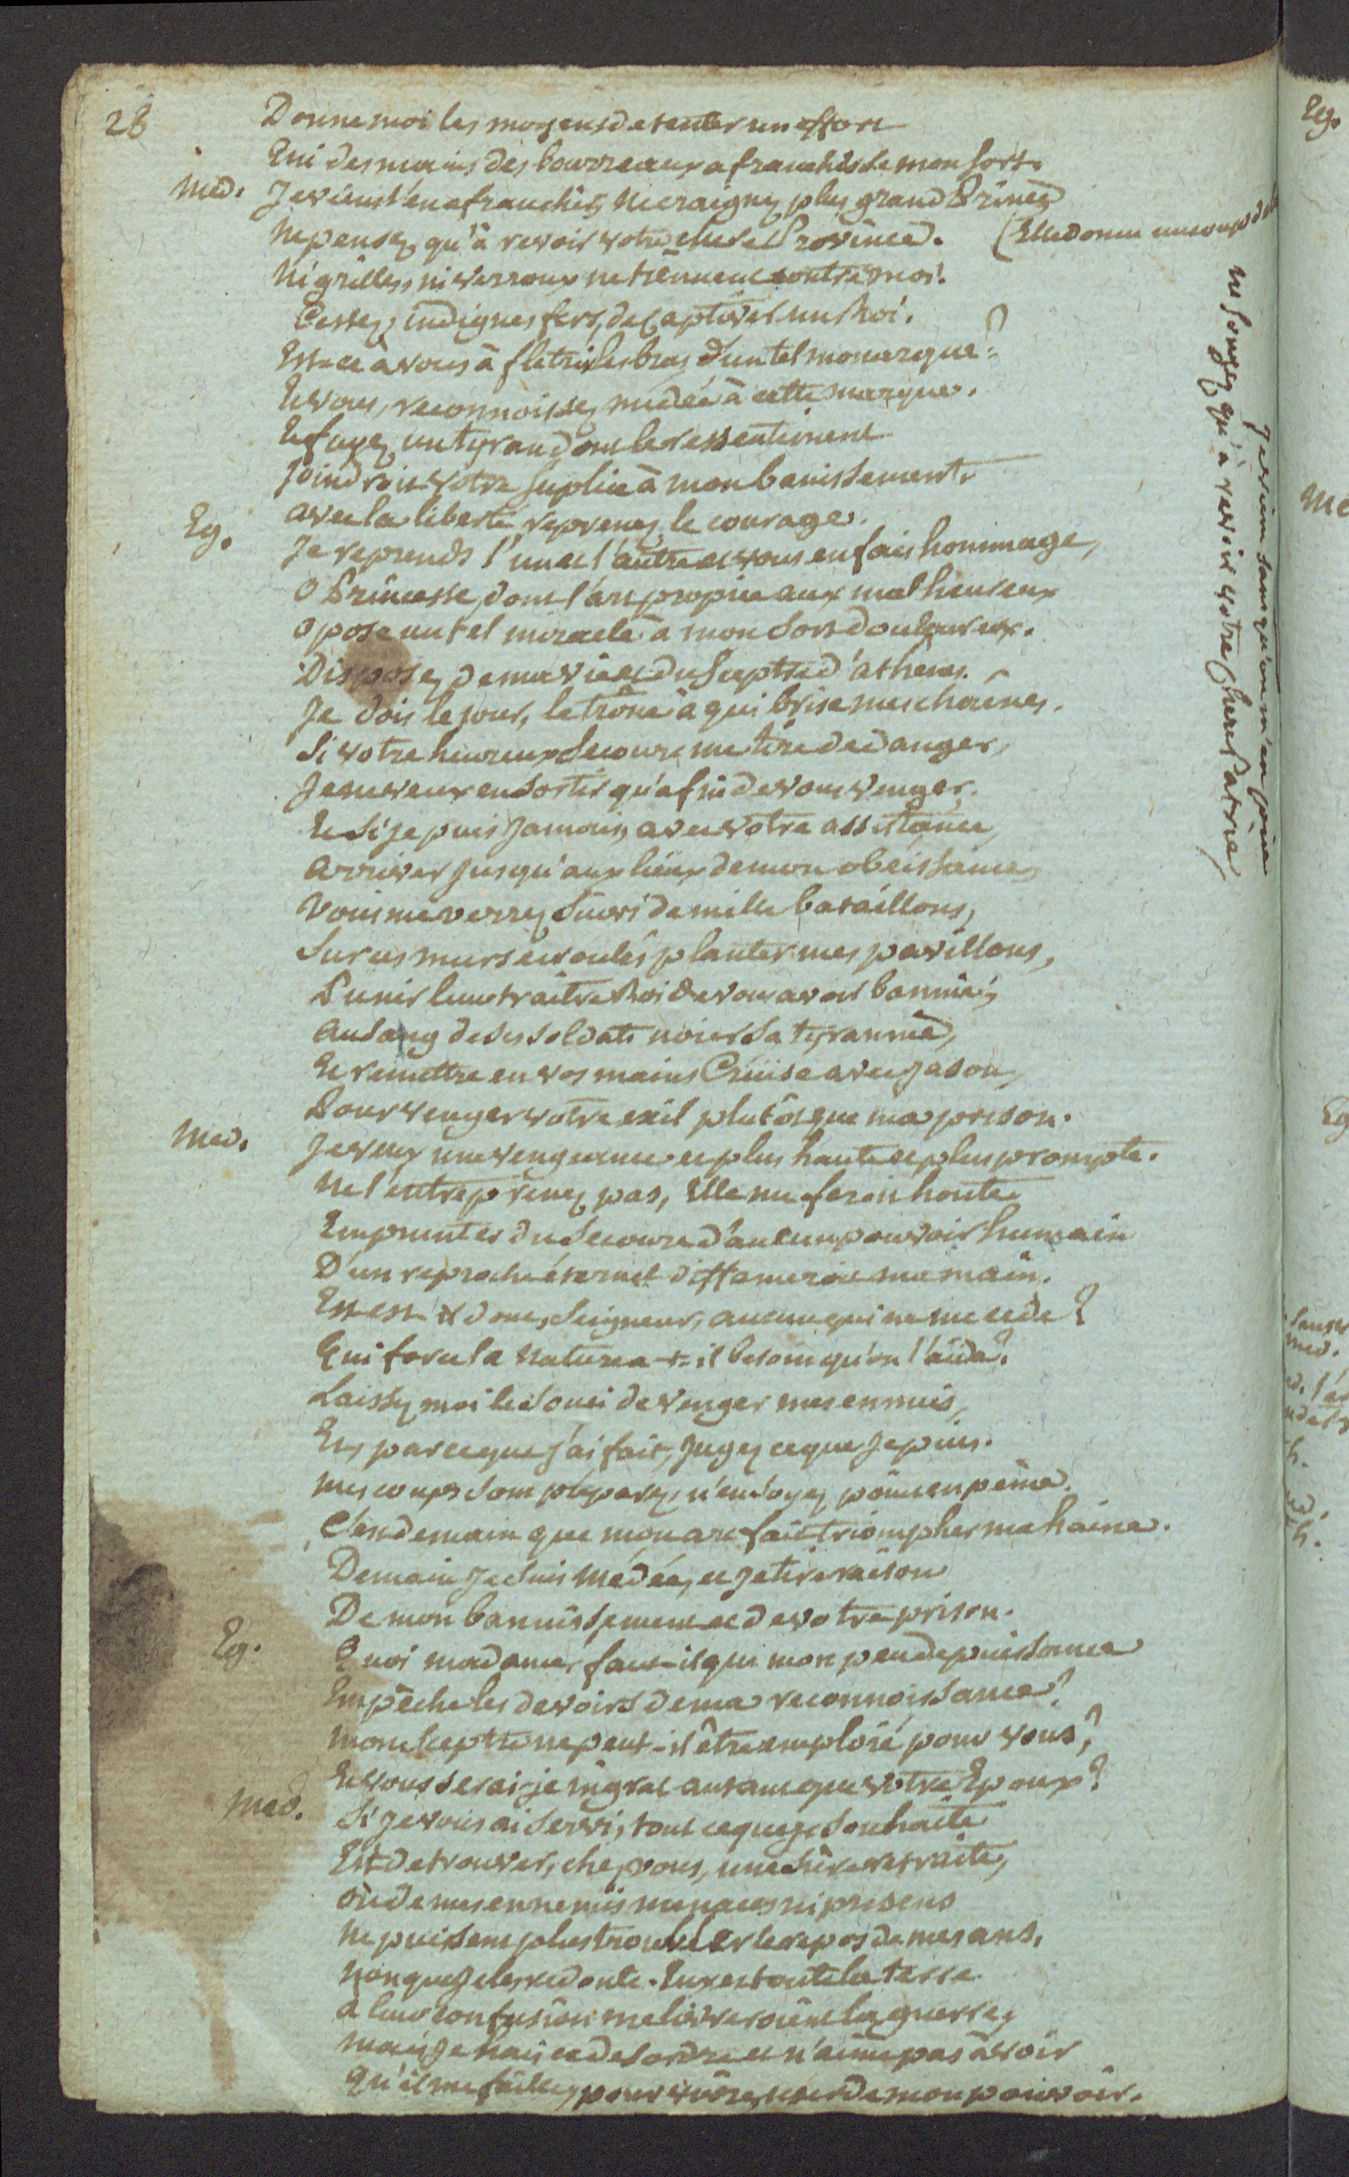 28
Donne moi les moyens de tenter un effort
Qui des mains des bourreaux afranchisse mon sort.
Med. Je viens l'en afranchir, ne craignez plus grand Prince
Ne pensez qu'à revoir votre chere Province. (Elle donne un coup de
Ni grilles, ni verroux ne tiennent contre moi.
Cessez, indignes fers, de captiver un Roi.
Est-ce à vous à fletrir les bras d'un tel monarque?
Et vous, reconnoissez médée à cette marque.
Et fuyez un tyran dont le ressentiment
Joindroit votre suplice à mon banissement.
avec la liberté, reprenez le courage.
Eg. Je reprends l'un et l'autre et vous en fais hommage,
O Princesse, dont l'art propice aux malheureux
Opose un tel miracle à mon sort douloureux.
Disposez de ma vie et du sceptre d'athènes.
Je dois le jour, le trône à qui brise mes chaînes.
Si votre heureux secours me tire de danger,
Je ne veux en sortir qu'afin de vous venger.
Et si je puis jamais, avec votre assistance,
arriver jusqu'aux lieux de mon obéissance
Vous me verrez suivi de mille bataillons,
Sur ces murs écroulés planter mes pavillons,
Punir leur traître Roi de vous avoir bannie,
au sang de ses soldats noier sa tyrannie,
Et remettre en vos mains Créüse avec jason,
Pour venger votre exil plutôt que ma prison.
Med. Je veux une vengeance et plus haute et plus prompte.
Ne l'entreprenez pas, Elle me feroit honte
Emprunter du secours d'aucun pouvoir humain
D'un reproche éternel diffameroit ma main.
En est-il donc, Seigneur, aucun qui ne me cede?
Qui force la nature a-t-il besoin qu'on l'aide?
Laissez moi le souci de venger mes ennuis,
Et, par ce que j'ai fait, jugez ce que je puis.
mes coups sont préparés, n'en soyez point en peine.
C'est demain que mon art fait triompher ma haine.
Demain je suis Médée, et je tire raison
De mon bannissement et de votre prison.
Eg. Quoi madame, faut-il que mon peu de puissance
Empêche les devoirs de ma reconnoissance?
mon sceptre ne peut-il être emploié pour vous?
Et vous serai-je ingrat autant que votre Epoux?
Med. Si je vous ai servi, tout ce que je souhaite
Est de trouver, chez vous, une sûre retraite,
où de mes ennemis menaces ni presens
Ne puissent plus troubler le repos de mes ans.
Non que je les redoute. Eux et toute la terre
à leur confusion me livreroient la guerre,
mais je hais ce desordre et n'aime pas à voir
Qu'il me faille, pour vivre, user de mon pouvoir.
Je viens sans qu'on m'en prie
ne songez qu'à revoir votre chere Patrie,
Eg.
Me
Eg